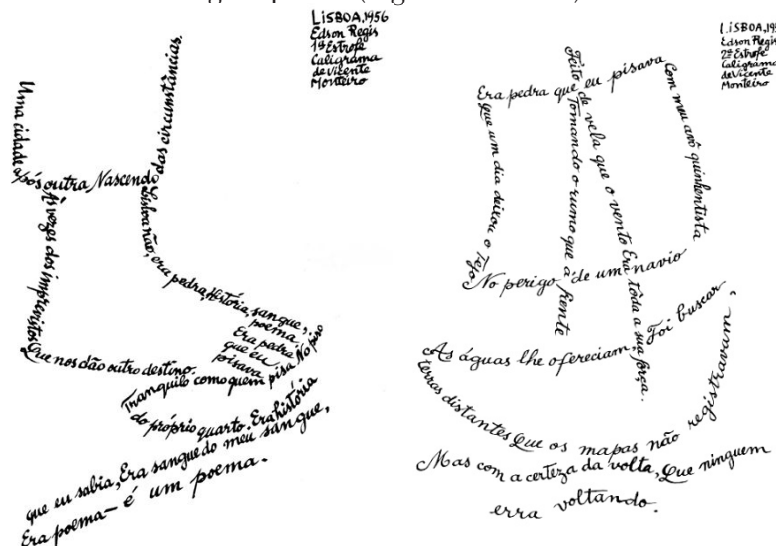 LiSBOA,1956
Edson Regis
1ª Estrofe
Caligrama
de Vicente
Monteiro
Uma cidade após outra Nascendo das circunstâncias.
Às vezes dos imprevistos
Que nos dão outro destino.
Lisboa não, era pedra, História, sangue,
poema
Era pedra
que eu
pisava
Tranquilo como quem pisa No piso
do próprio quarto. Era história
que eu sabia, Era sangue do meu sangue,
Era poema — é um poema.
LiSBOA,195
Edson Regis
2ª Estrofe
Caligrama
de Vicente
Monteiro
Era pedra que eu pisava
Com meu avô quinhentista
Que um dia deixou o Tejo
Tomando o rumo que à frente
Feito de vela que o vento Era tôda a sua força.
No perigo de um navio
As águas lhe ofereciam, Foi buscar
terras distantes Que os mapas não registravam,
Mas com a certeza da volta, Que ninguem
erra voltando.